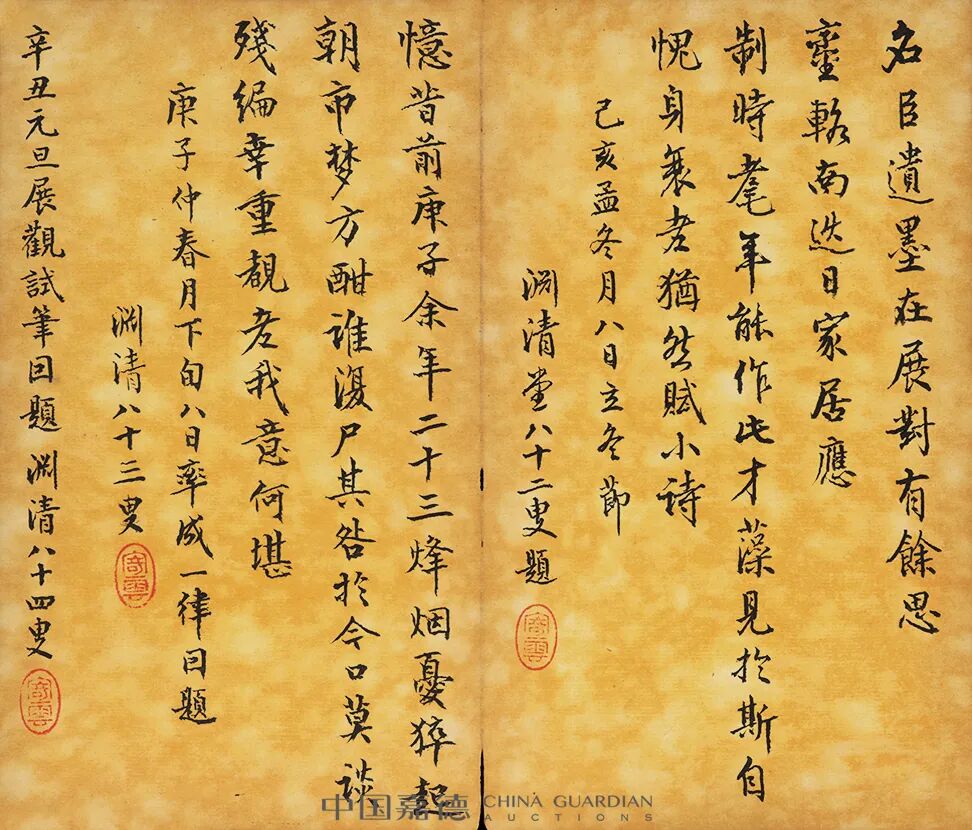 名臣遺墨在展對有餘思
鑾輅南巡日家居應
制時耄年能作此才藻見於斯自
愧身衰老猶然賦小詩
己亥孟冬月八日立冬節
渊清堂八十二叟題
寄雲
憶昔前庚子余年二十三烽烟憂猝起
朝市梦方酣誰復尸其咎於今口莫談
殘編幸重覩老我意何堪
庚子仲春月下旬八日率成一律因題
渊清八十三叟
寄雲
辛丑元旦展觀試筆因題 渊清八十四叟
寄雲
中国嘉德 CHINA GUARDIAN
AUCTIONS